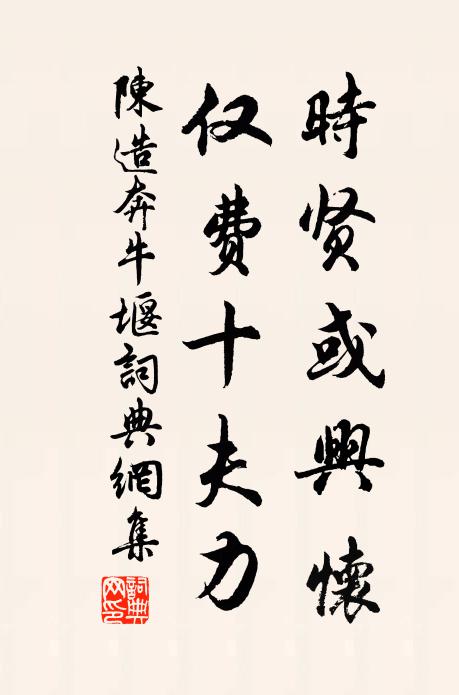 時贤或興懷
仅费十夫力
陳造奔牛堰詞典網集
詞典网印